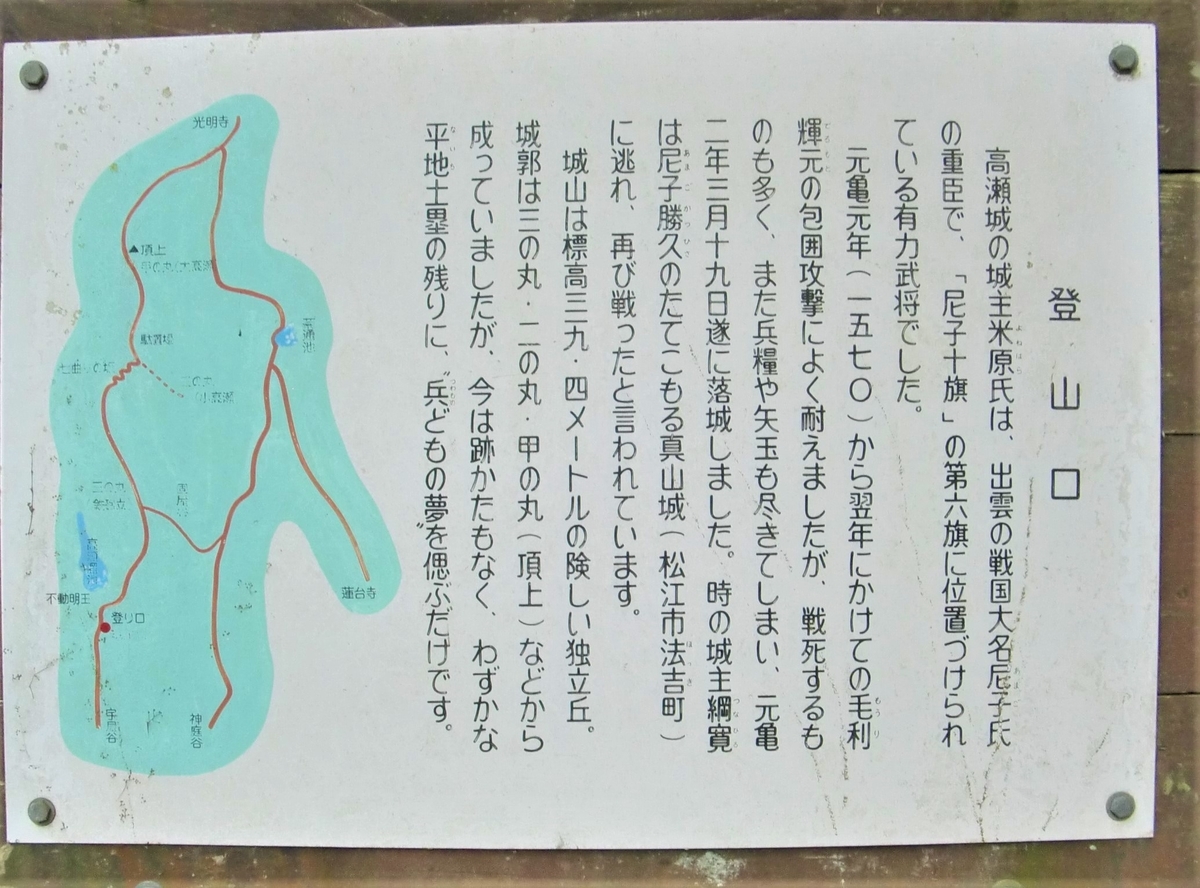 登山口
高瀬城の城主米原氏は、出雲の戦国大名尼子氏
の重臣で、「尼子十旗」の第六旗に位置づけられ
ている有力武将でした。
元亀元年(一五七〇)から翌年にかけての毛利
輝元の包囲攻撃によく耐えましたが、戦死するも
のも多く、また兵糧や矢玉も尽きてしまい、元亀
二年三月十九日遂に落城しました。時の城主綱寛
は尼子勝久のたてこもる真山城(松江市法吉町)
に逃れ、再び戦ったと言われています。
城山は標高三九・四メートルの険しい独立丘。
城郭は三の丸・二の丸・甲の丸(頂上)などから
成っていましたが、今は跡かたもなく、わずかな
平地土塁の残りに、〝兵どもの夢〟を偲ぶだけです。
光明寺
頂上
甲の丸(大高瀬
駄置場
七曲りの坂
二の丸
(小高瀬
三の丸
不動明王
登り口
蓮台寺
神庭谷